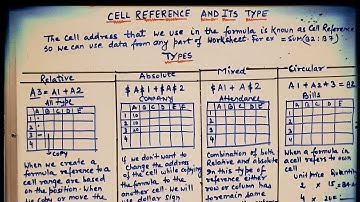 CELL REFERENCE AND ITS TYPE
The Cell address that we use in the formula is known as Cell Reference
So we can use data from any part of Worksheet for ex = SUM(B2:B7)
TYPES
Relative
A3 = A1 + A2
All type
A B C D E
1
2
3
4
copy
When we create a
formula reference to a
cell range are based
on the position. When
we copy or move the
Absolute
$A$1 + $A$2
COMPANY
A B C D E F
1 10
2 10
3
4
If we don't want to
change the address
of the cell while copying
the formula to the
another cell. We will
use dollar sign
Mixed
$A1 + A$2
Attendance
A B C D E
1
2
3
4
Combination of both
Relative and absolute
In this type of
reference either
row or column has
to remain same
Circular
A1 + A2 + 3 = A2
Bills
A B C D E
1
2
3
4
When a formula in
a cell refers to own
cell
unit Price
2 × 15 =
4 20